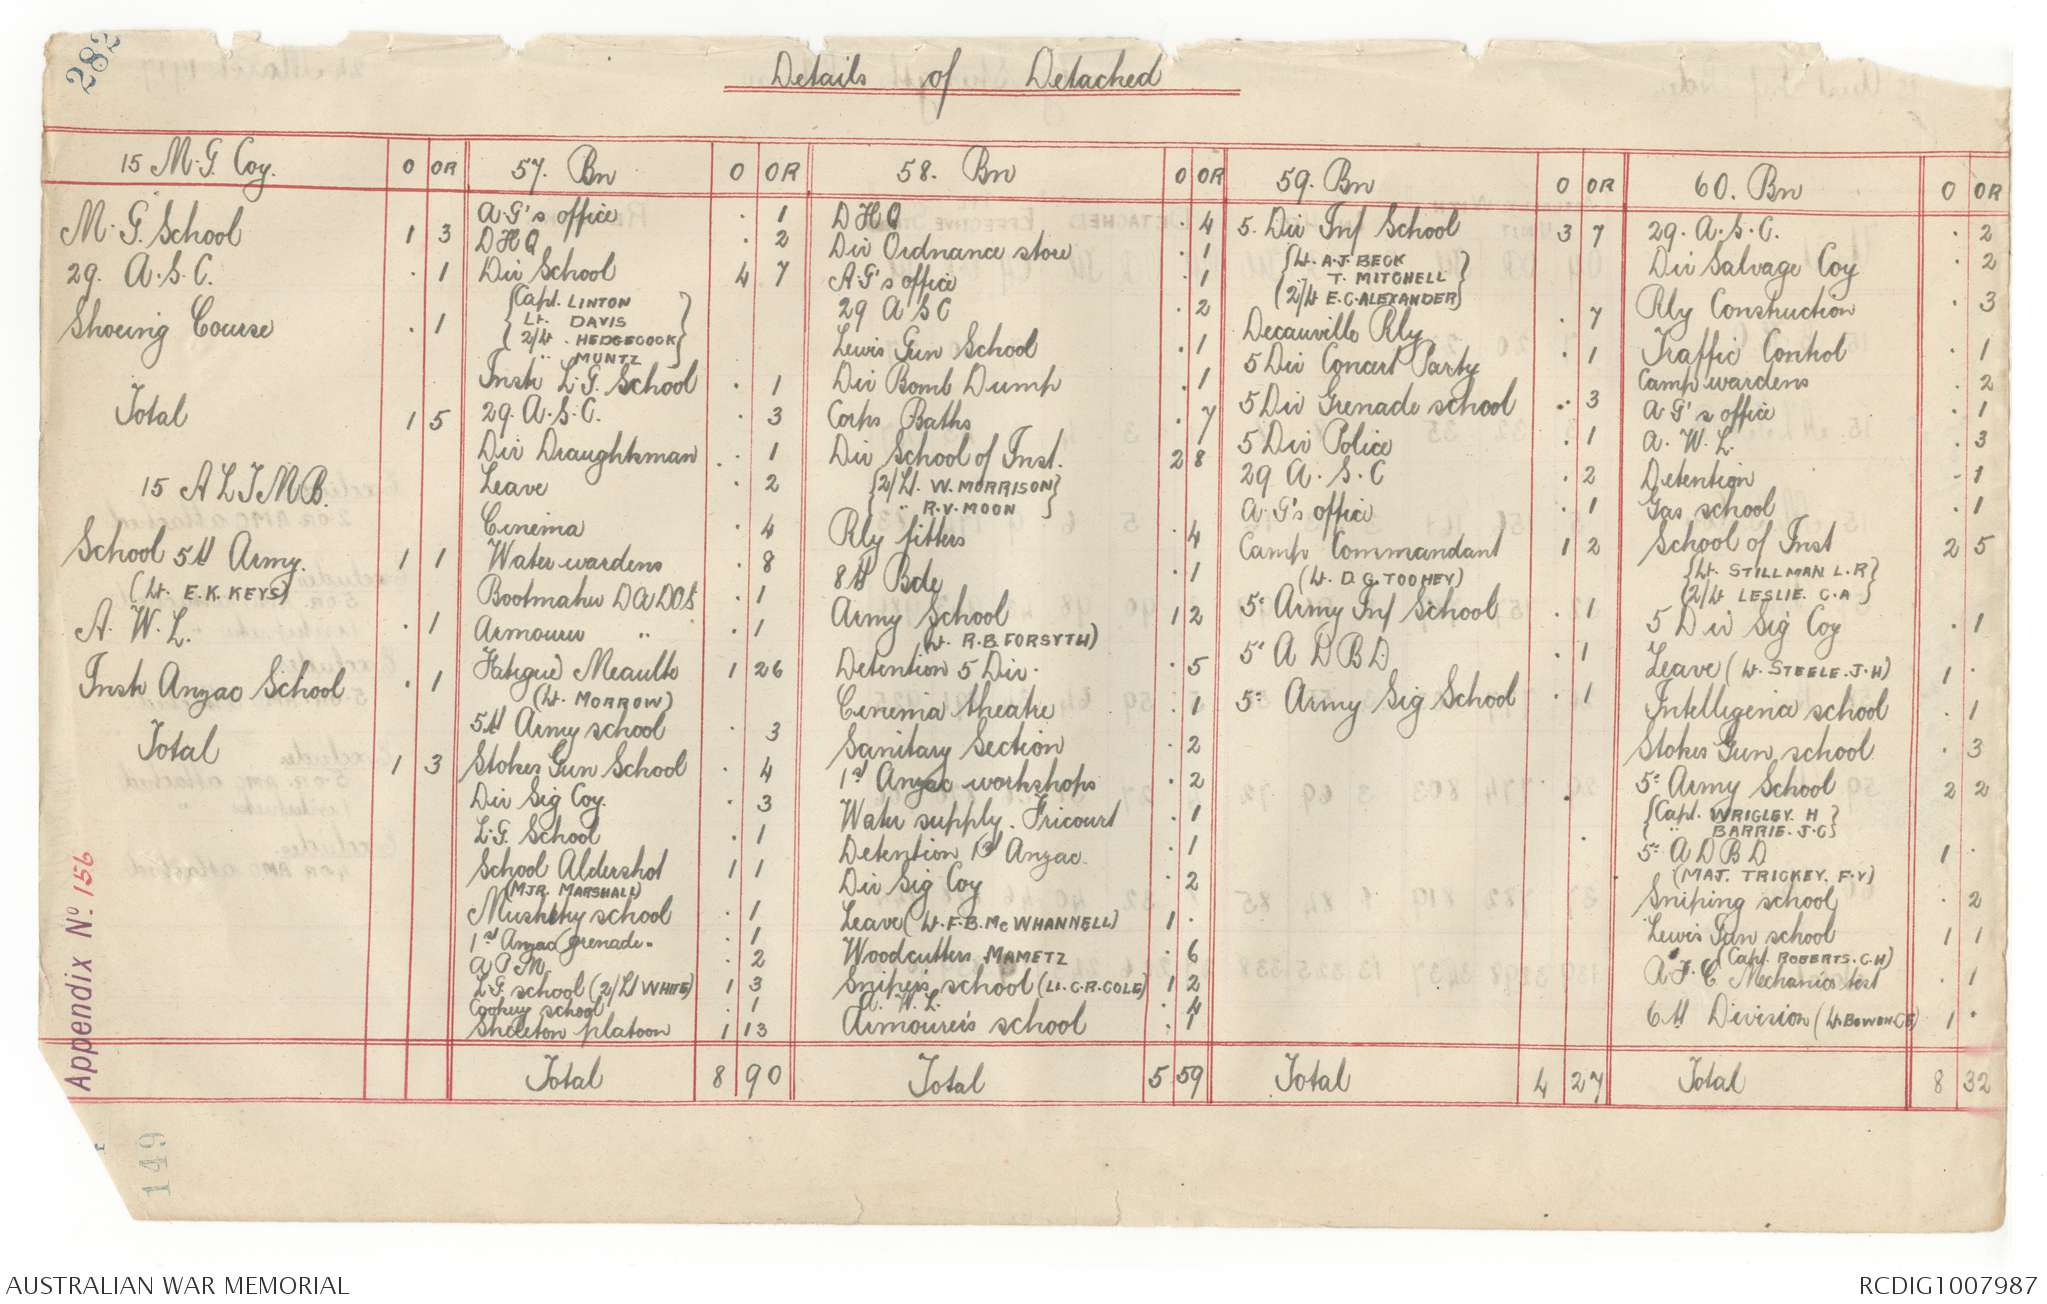 282
Details of Detached
15 M.G. Coy. O OR
M.G. School 1 3
29. A.S.C. . 1
Shoeing Course . 1
Total 1 5
15 A L T M B.
School 5th Army. 1 1
(Lt. E.K. KEYS)
A. W. L. . 1
Instr Anzac School . 1
Total 1 3
57. Bn O OR
A G's office . 1
D H Q . 2
Div School 4 7
{Capt. LINTON
Lt. DAVIS
2/Lt. HEDGECOCK
" MUNTZ}
Instr L.G. School . 1
29. A.S.C. . 3
Div Draughtsman . 1
Leave . 2
Cinema . 4
Water wardens . 8
Bootmaker DADOS . 1
Armourer " . 1
Fatigue Meaulte 1 26
(Lt. MORROW)
5th Army school . 3
Stokes Gun School . 4
Div Sig Coy. . 3
L.G. School . 1
School Aldershot 1 1
(MJR. MARSHALL)
Musketry school . 1
1st Anzac Grenade " . 1
A P M . 2
L.G. school (2/Lt WHITE) 1 3
Cookery school . 1
Skeleton platoon 1 13
Total 8 90
58. Bn O OR
D H Q . 4
Div Ordnance store . 1
A.G's office . 1
29 A S C . 2
Lewis Gun School . 1
Div Bomb Dump . 1
Corps Baths . 7
Div School of Inst. 2 8
{2/Lt. W. MORRISON
" R.V. MOON}
Rly fitters . 4
8th Bde . 1
Army School 1 2
(Lt. R.B. FORSYTH)
Detention 5 Div. . 5
Cinema theatre . 1
Sanitary Section . 2
1st Anzac workshops . 2
Water supply. Fricourt . 1
Detention 1st Anzac . 1
Div Sig Coy . 2
Leave (Lt. F.B. McWHANNELL) 1 .
Woodcutters MAMETZ . 6
Sniper's school (Lt. C.R. COLE) 1 2
A. W. L. . 4
Armourer's school . 1
Total 5 59
59. Bn O OR
5. Div Inf School 3 7
{Lt. A.J. BECK
" T. MITCHELL
2/Lt E.C. ALEXANDER}
Decauville Rly . 7
5 Div Concert Party . 1
5 Div Grenade school . 3
5 Div Police . 1
29 A.S.C . 2
A.G's office . 1
Camp Commandant 1 2
(Lt. D.G. TOOHEY)
5th Army Inf School . 1
5th A D B D . 1
5th Army Sig School . 1
Total 4 27
60. Bn O OR
29. A.S.C. . 2
Div Salvage Coy . 2
Rly Construction . 3
Traffic Control . 1
Camp wardens . 2
A G's office . 1
A. W. L. . 3
Detention . 1
Gas school . 1
School of Inst 2 5
{Lt. STILLMAN L.R
2/Lt LESLIE. C.A}
5 Div Sig Coy . 1
Leave (Lt. STEELE. J.H) 1 .
Intelligence school . 1
Stokes Gun school . 3
5th Army School 2 2
{Capt. WRIGLEY. H
" BARRIE. J.C}
5th A D B D 1 .
(MAJ. TRICKEY. F.V)
Sniping school . 2
Lewis Gun school 1 1
(Capt. ROBERTS. C.H)
A.F.C Mechanics test . 1
6th Division (Lt. BOWEN CE) 1 .
Total 8 32
Appendix No. 156
149
AUSTRALIAN WAR MEMORIAL
RCDIG1007987